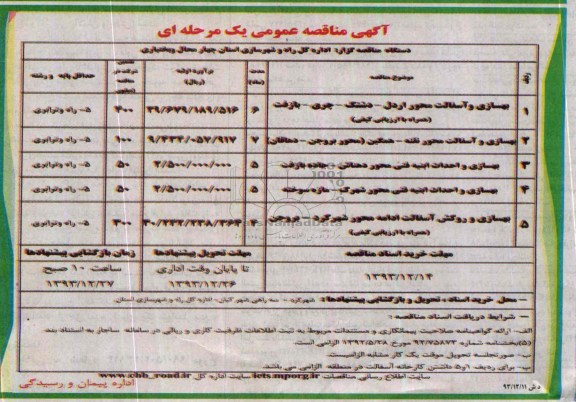 آگهی مناقصه عمومی یک مرحله ای
دستگاه مناقصه گزار: اداره کل راه و شهرسازی استان چهار محال وبختیاری
ردیف موضوع مناقصه مدت (ماه) برآورد اولیه (ریال) تضمین شرکت در مناقصه حداقل پایه و رشته
۱ بهسازی و آسفالت محور اردل - دشتک - چری - بازفت (همراه با ارزیابی کیفی) ۶ ۳۹/۶۷۹/۱۸۹/۵۱۶ ۴۰۰ ۵- راه وترابری
۲ بهسازی و آسفالت محور نقنه - همگین (محور بروجن - دهاقان) ۷ ۹/۴۳۴/۰۵۷/۹۱۷ ۱۰۰ ۵- راه وترابری
۳ بهسازی و احداث ابنیه فنی محور دهناش - جاده بازفت ۵ ۲/۵۰۰/۰۰۰/۰۰۰ ۵۰ ۵- راه وترابری
۴ بهسازی و احداث ابنیه فنی محور شهرک - مازه سوخته ۵ ۲/۵۰۰/۰۰۰/۰۰۰ ۵۰ ۵- راه وترابری
۵ بهسازی و روکش آسفالت ادامه محور شهرکرد - بروجن (همراه با ارزیابی کیفی) ۴ ۳۰۰ ۵- راه وترابری
مهلت خرید اسناد مناقصه مهلت تحویل پیشنهادها زمان بازگشایی پیشنهادها
۱۳۹۳/۱۲/۱۴ تا پایان وقت اداری ۱۳۹۳/۱۲/۲۶ ساعت ۱۰ صبح ۱۳۹۳/۱۲/۲۷
– محل خرید اسناد ، تحویل و بازگشایی پیشنهادها : شهرکرد - سه راهی شهر کیان- اداره کل راه و شهرسازی استان.
– شرایط دریافت اسناد مناقصه :
الف- ارائه گواهینامه صلاحیت پیمانکاری و مستندات مربوط به ثبت اطلاعات ظرفیت کاری و ریالی در سامانه ساجار به استناد بند
(۵) بخشنامه شماره ۹۲/۷۵۸۷۳ مورخ ۱۳۹۲/۵/۲۸ الزامی است.
ب- صورتجلسه تحویل موقت یک کار مشابه الزامیست.
پ- برای ردیف ۱و۵ داشتن کارخانه آسفالت در منطقه الزامی می باشد.
سایت اطلاع رسانی مناقصات iets.mporg.ir سایت اداره کل www.chb_road.ir
اداره پیمان و رسیدگی
۹۳/۱۲/۱۱